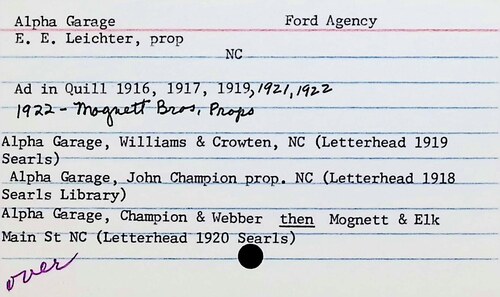 Alpha Garage Ford Agency
E. E. Leichter, prop
NC
Ad in Quill 1916, 1917, 1919, 1921, 1922
1922 - Mognett Bros, Props
Alpha Garage, Williams & Crowten, NC (Letterhead 1919
Searls)
Alpha Garage, John Champion prop. NC (Letterhead 1918
Searls Library)
Alpha Garage, Champion & Webber then Mognett & Elk
Main St NC (Letterhead 1920 Searls)
over